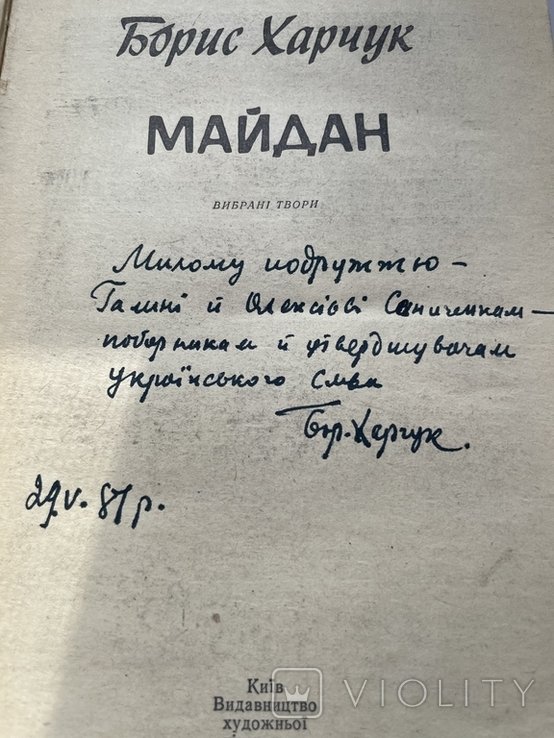 Борис Харчук
МАЙДАН
ВИБРАНІ ТВОРИ
Милому подружжю –
Галині й Олексієві Сениченкам –
поборникам й утверджувачам
українського слова
Бор. Харчук.
29.V.87р.
Київ
Видавництво
художньої
VIOLITY